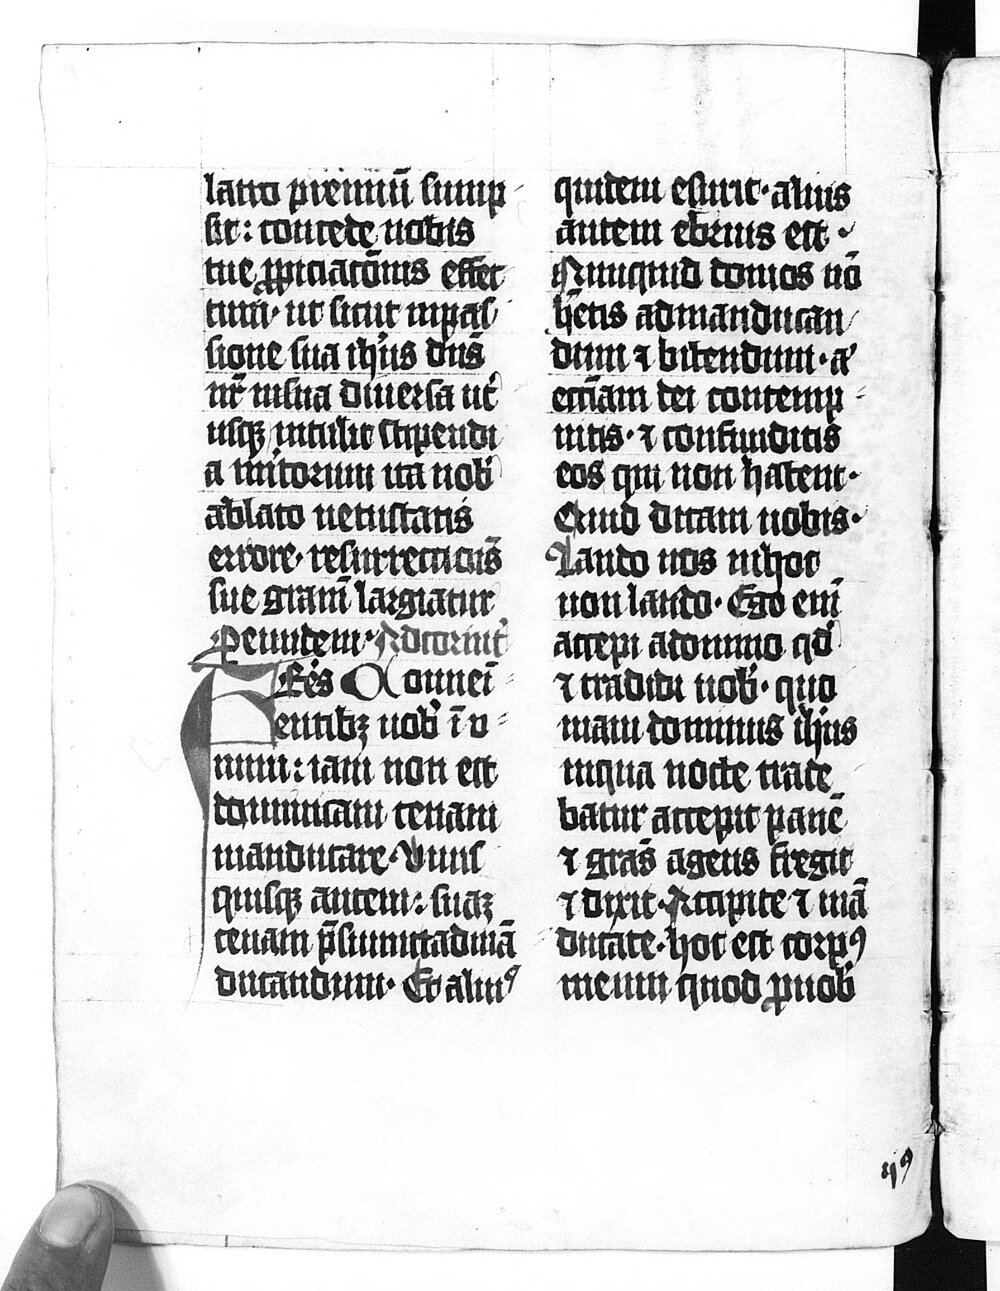 latro premiū sump
sit: concede nobis
tue ꝓpiciacōnis effec
tum· ut sicut inpas
sione sua ih̄us dn̄s
nr̄ ihsua diuersa utͥ
usqꝫ intulit stipendi
a mͥtorum ita nobͥ
ablato uetustatis
errore· resurrectiōis
sue gram̄ largiatur
Peundem· Ad corint̄
Fr̄es Conueī
entibꝫ uobͥ ī u
num: iam non est
dominicam cenam
manducare· Vnus
quisqꝫ autem: suaꝫ
cenam p̄sumit admā
ducandum· Et aliuꝰ
quidem esurit· alius
autem ebrius est·
Nunquid domos nō
hētis ad mandican
dum ⁊ bibendum· aͭ
eccīam dei contemp
nitis· ⁊ confunditis
eos qui non habent·
Quid dicam uobis·
Laudo uos in hoc
non laudo· Ego enī
accepi a domino qd̄
⁊ tradidi uobͥ· quo
niam dominus ih̄us
inqua nocte trade
batur accepit panē
⁊ gras̄ agens fregit
⁊ dixit· Accipite ⁊ mā
ducate· hoc est corpꝰ
meum quod ꝓ uobͥ
49